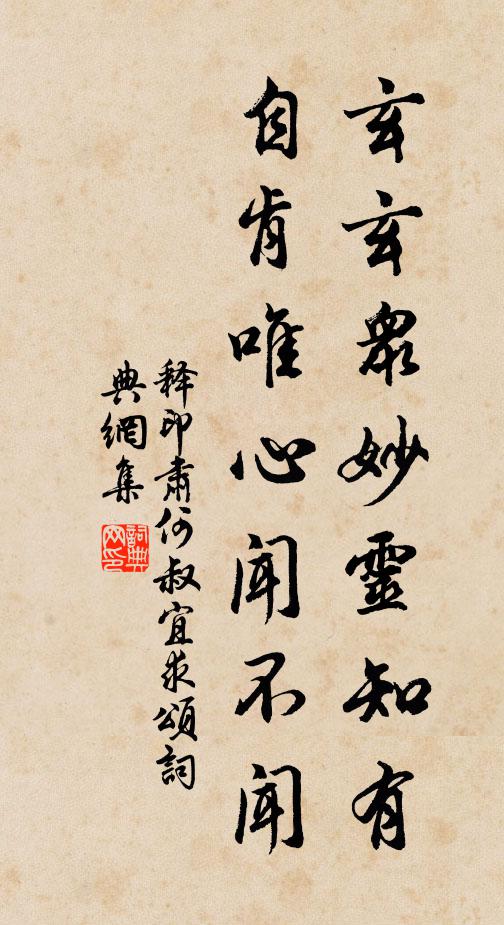 玄玄衆妙靈知有
自肯唯心闻不闻
释印肃何叔宜求頌詞
典網集
詞典
网印